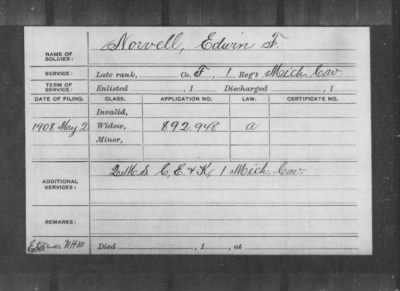 NAME OF SOLDIER: Norvell, Edwin F.
SERVICE: Late rank, Co. F, 1 Reg't Mich Cav
TERM OF SERVICE: Enlisted , 1 Discharged , 1
DATE OF FILING. CLASS. APPLICATION NO. LAW. CERTIFICATE NO.
Invalid,
1908 May 2 Widow, 892.948 a
Minor,
ADDITIONAL SERVICES: Q.M.S. C, E. & K, 1 Mich Cav
REMARKS:
Died , 1 , at